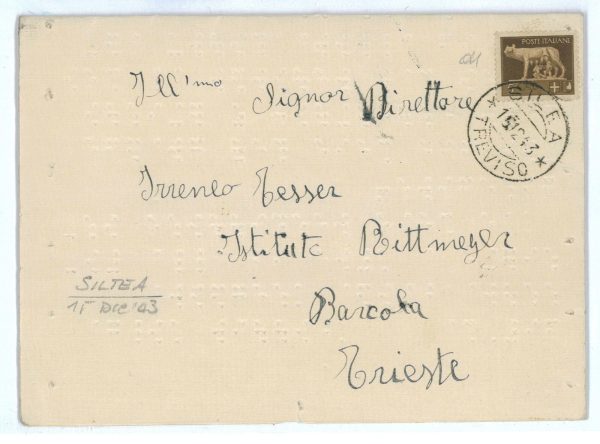 POSTE ITALIANE
Ill'mo Signor Direttore
SILEA
15.12.43
TREVISO
Irreneo Tesser
Istituto Rittmeyer
SILTEA
15 DIC '43
Barcola
Trieste